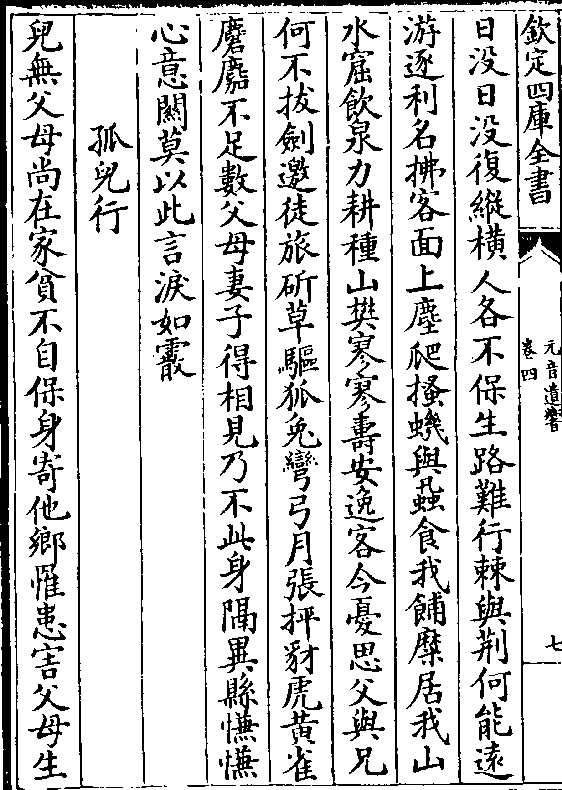 欽定四庫全書
元音遺響
卷四
七
日没日没復縱横人各不保生路難行棘與荆何能遠
游逐利名拂客面上塵爬搔蟣與蝨食我餔糜居我山
水窟飲泉力耕種山樊寒寒壽安逸客今憂思父與兄
何不拔劍邀徒旅斫草驅狐兔彎弓月張抨豺虎黄雀
麏麚不足數父母妻子得相見乃不此身隔異縣憮憮
心意闗莫以此言淚如霰
孤兒行
兒無父母尚在家貧不自保身寄他鄉罹患害父母生